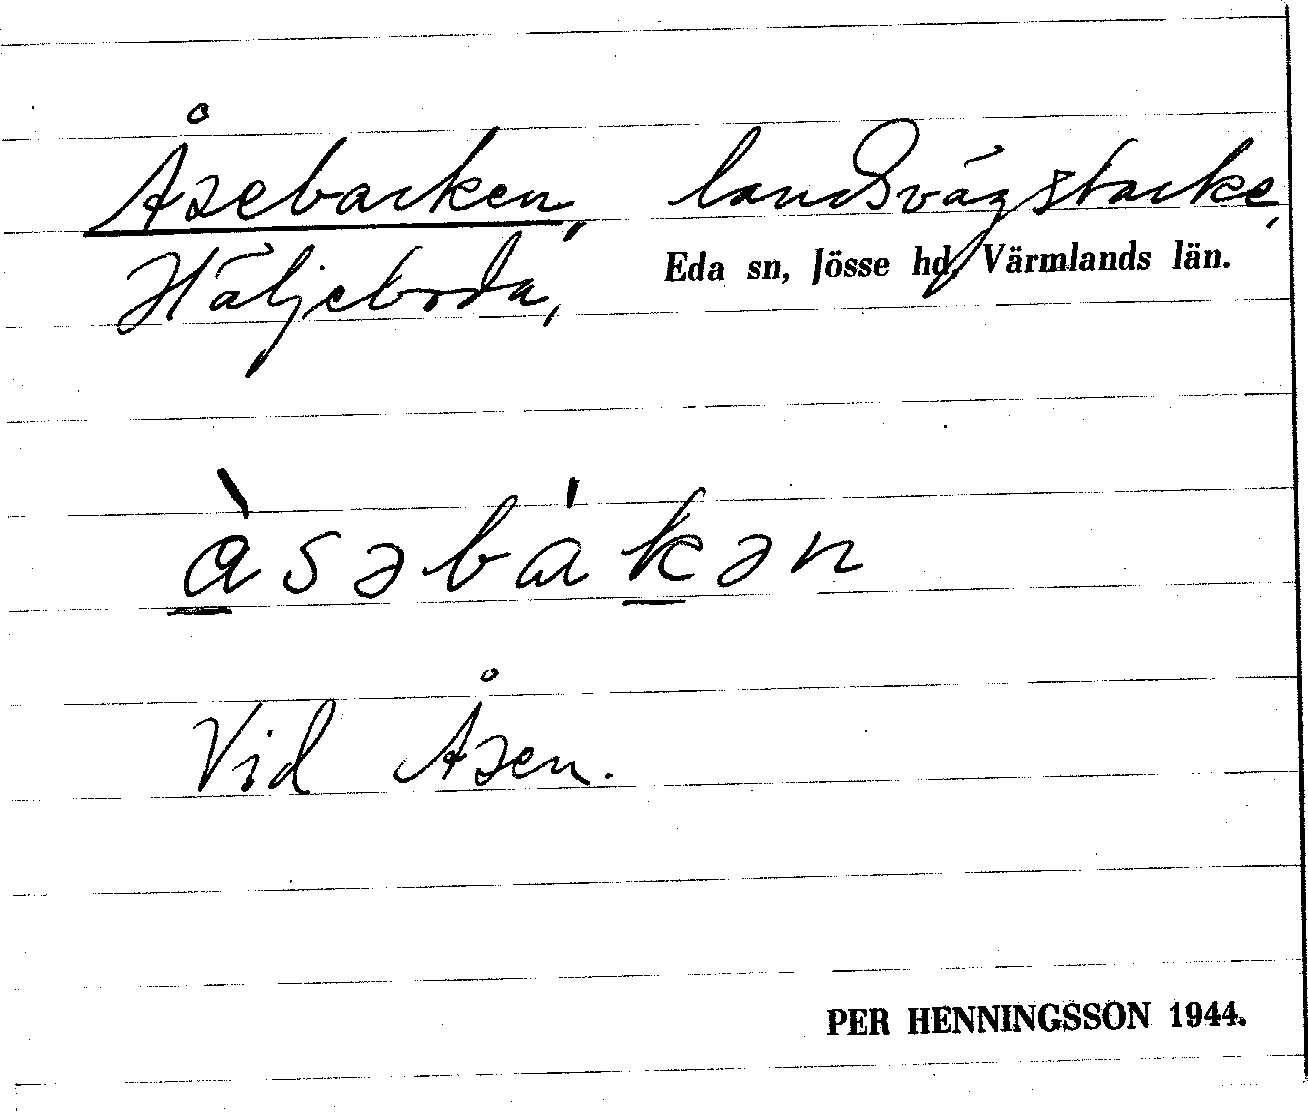 Åsebacken, landsvägsbacke,
Häljeboda, Eda sn, Jösse hd, Värmlands län.
àsəbákən
Vid Åsen.
PER HENNINGSSON 1944.